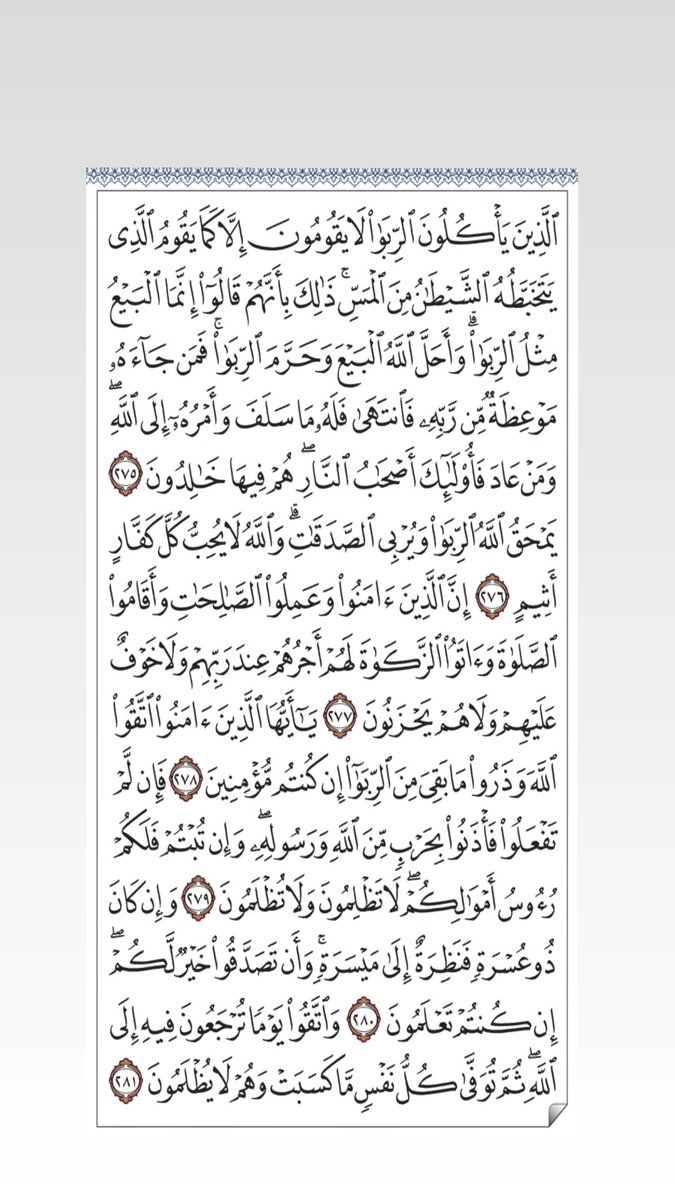 ٱلَّذِينَ يَأۡكُلُونَ ٱلرِّبَوٰاْ لَا يَقُومُونَ إِلَّا كَمَا يَقُومُ ٱلَّذِى
يَتَخَبَّطُهُ ٱلشَّيۡطَٰنُ مِنَ ٱلۡمَسِّۚ ذَٰلِكَ بِأَنَّهُمۡ قَالُوٓاْ إِنَّمَا ٱلۡبَيۡعُ
مِثۡلُ ٱلرِّبَوٰاْۗ وَأَحَلَّ ٱللَّهُ ٱلۡبَيۡعَ وَحَرَّمَ ٱلرِّبَوٰاْۚ فَمَن جَآءَهُۥ
مَوۡعِظَةٞ مِّن رَّبِّهِۦ فَٱنتَهَىٰ فَلَهُۥ مَا سَلَفَ وَأَمۡرُهُۥٓ إِلَى ٱللَّهِۖ
وَمَنۡ عَادَ فَأُوْلَٰٓئِكَ أَصۡحَٰبُ ٱلنَّارِۖ هُمۡ فِيهَا خَٰلِدُونَ ٢٧٥
يَمۡحَقُ ٱللَّهُ ٱلرِّبَوٰاْ وَيُرۡبِى ٱلصَّدَقَٰتِۗ وَٱللَّهُ لَا يُحِبُّ كُلَّ كَفَّارٍ
أَثِيمٍ ٢٧٦ إِنَّ ٱلَّذِينَ ءَامَنُواْ وَعَمِلُواْ ٱلصَّٰلِحَٰتِ وَأَقَامُواْ
ٱلصَّلَوٰةَ وَءَاتَوُاْ ٱلزَّكَوٰةَ لَهُمۡ أَجۡرُهُمۡ عِندَ رَبِّهِمۡ وَلَا خَوۡفٌ
عَلَيۡهِمۡ وَلَا هُمۡ يَحۡزَنُونَ ٢٧٧ يَٰٓأَيُّهَا ٱلَّذِينَ ءَامَنُواْ ٱتَّقُواْ
ٱللَّهَ وَذَرُواْ مَا بَقِىَ مِنَ ٱلرِّبَوٰٓاْ إِن كُنتُم مُّؤۡمِنِينَ ٢٧٨ فَإِن لَّمۡ
تَفۡعَلُواْ فَأۡذَنُواْ بِحَرۡبٖ مِّنَ ٱللَّهِ وَرَسُولِهِۦۖ وَإِن تُبۡتُمۡ فَلَكُمۡ
رُءُوسُ أَمۡوَٰلِكُمۡ لَا تَظۡلِمُونَ وَلَا تُظۡلَمُونَ ٢٧٩ وَإِن كَانَ
ذُو عُسۡرَةٖ فَنَظِرَةٌ إِلَىٰ مَيۡسَرَةٖۚ وَأَن تَصَدَّقُواْ خَيۡرٞ لَّكُمۡۖ
إِن كُنتُمۡ تَعۡلَمُونَ ٢٨٠ وَٱتَّقُواْ يَوۡمٗا تُرۡجَعُونَ فِيهِ إِلَى
ٱللَّهِۖ ثُمَّ تُوَفَّىٰ كُلُّ نَفۡسٖ مَّا كَسَبَتۡ وَهُمۡ لَا يُظۡلَمُونَ ٢٨١